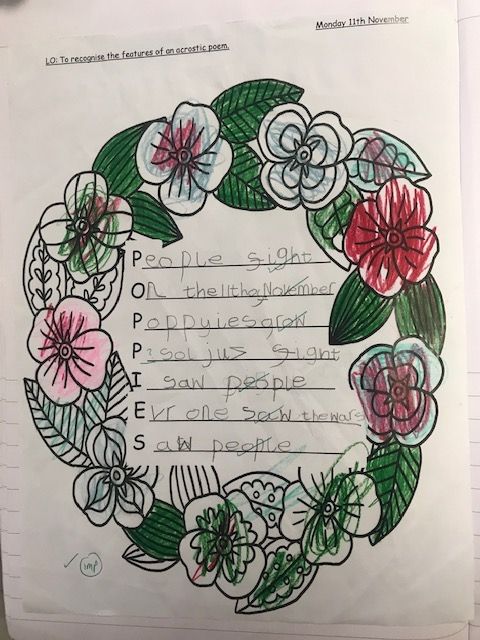 Monday 11th November
LO: To recognise the features of an acrostic poem.
People sight
On the 11th og November
Poppyies grow
P sol jus sight
I saw people
Evr one saw the wars
Saw people
imp